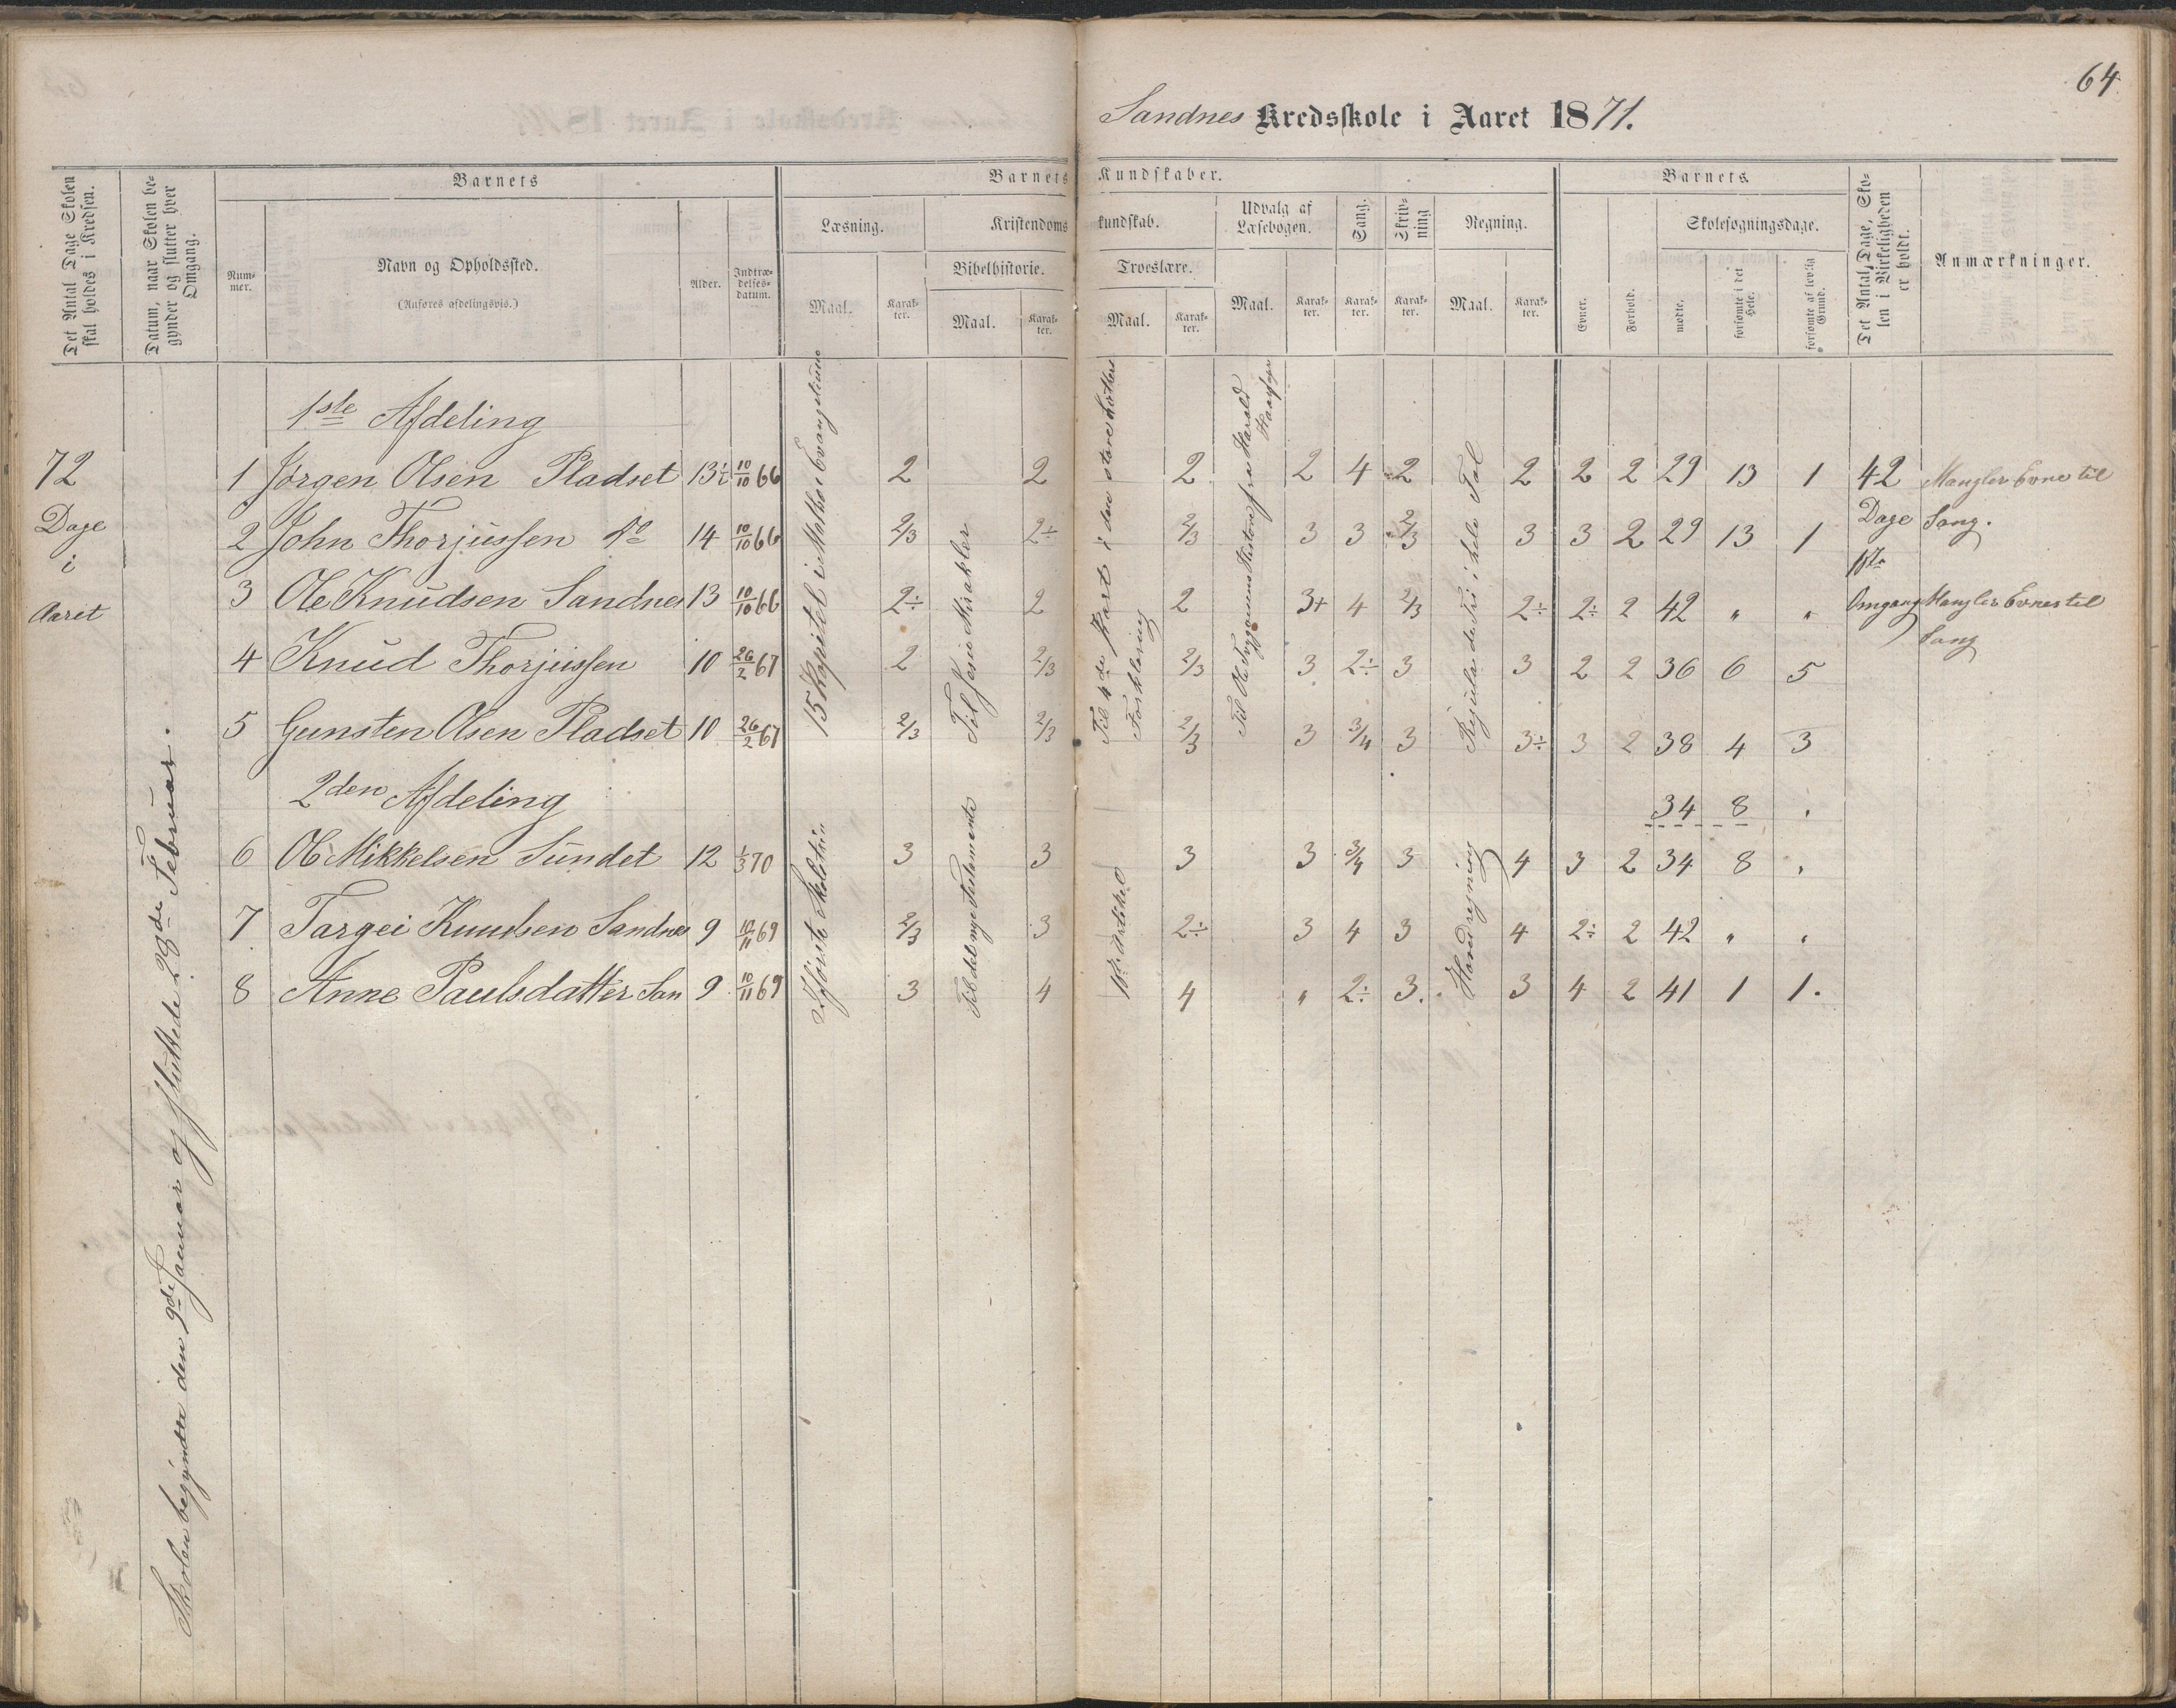 64
Sandnes Kredsskole i Aaret 1871.
Det Antal Dage Skolen skal holdes i Kredsen.
Datum, naar Skolen begynder og slutter hver Omgang.
Barnets
Barnets Kundskaber.
Barnets
Det Antal Dage, Skolen i Virkeligheden er holdt.
Anmærkninger.
Nummer.
Navn og Opholdssted.
(Anføres afdelingsvis.)
Alder.
Indtrædelsesdatum.
Læsning.
Kristendomskundskab.
Udvalg af Læsebogen.
Sang.
Skrivning
Regning.
Evner.
Forhold.
Skolesøgningsdage.
Bibelhistorie.
Troeslære.
Maal.
Karakter.
Maal.
Karakter.
Maal.
Karakter.
Maal.
Karakter.
Karakter.
Karakter.
Maal.
Karakter.
mødte.
forsømte i det Hele.
forsømte af lovlig Grund.
72
Dage
i
Aaret
Skolen begyndte den 9de Januar og sluttede 28de Februar.
1ste Afdeling
15 Kapitel i Matthæi Evangelium
Til Jesu Mirakler
Til 4de Part i den store
Forklaring
Til Ole Tryggvasens Historie fra Harald
Haarfager
Regula de Tri i hele Tal
1 Jørgen Olsen Pladset 13½ 10/10 66 2 2 2 2 4 2 2 2 2 29 13 1 42 Mangler Evne til
2 John Thorjussen do 14 10/10 66 2/3 2÷ 2/3 3 3 2/3 3 3 2 29 13 1 Dage Sang.
1ste
3 Ole Knudsen Sandnes 13 10/10 66 2÷ 2 2 3+ 4 2/3 2÷ 2÷ 2 42 " " Omgang Mangler Evnes til
Sang
4 Knud Thorjussen 10 26/2 67 2 2/3 2/3 3 2÷ 3 3 2 2 36 6 5
5 Gunsten Olsen Pladset 10 26/2 67 2/3 2/3 2/3 3 3/4 3 3÷ 3 2 38 4 3
2den Afdeling
34 8 .
Til det nye Testamente
1ste Artikel
Hovedregning
6 Ole Mikkelsen Sundet 12 1/3 70 3 3 3 3 3/4 3 4 3 2 34 8 .
7 Targei Knudsen Sandnes 9 10/11 69 2/3 3 2÷ 3 4 3 4 2÷ 2 42 " "
8 Anne Paulsdatter San 9 10/11 69 3 4 4 " 2÷ 3. 3 4 2 41 1 1.